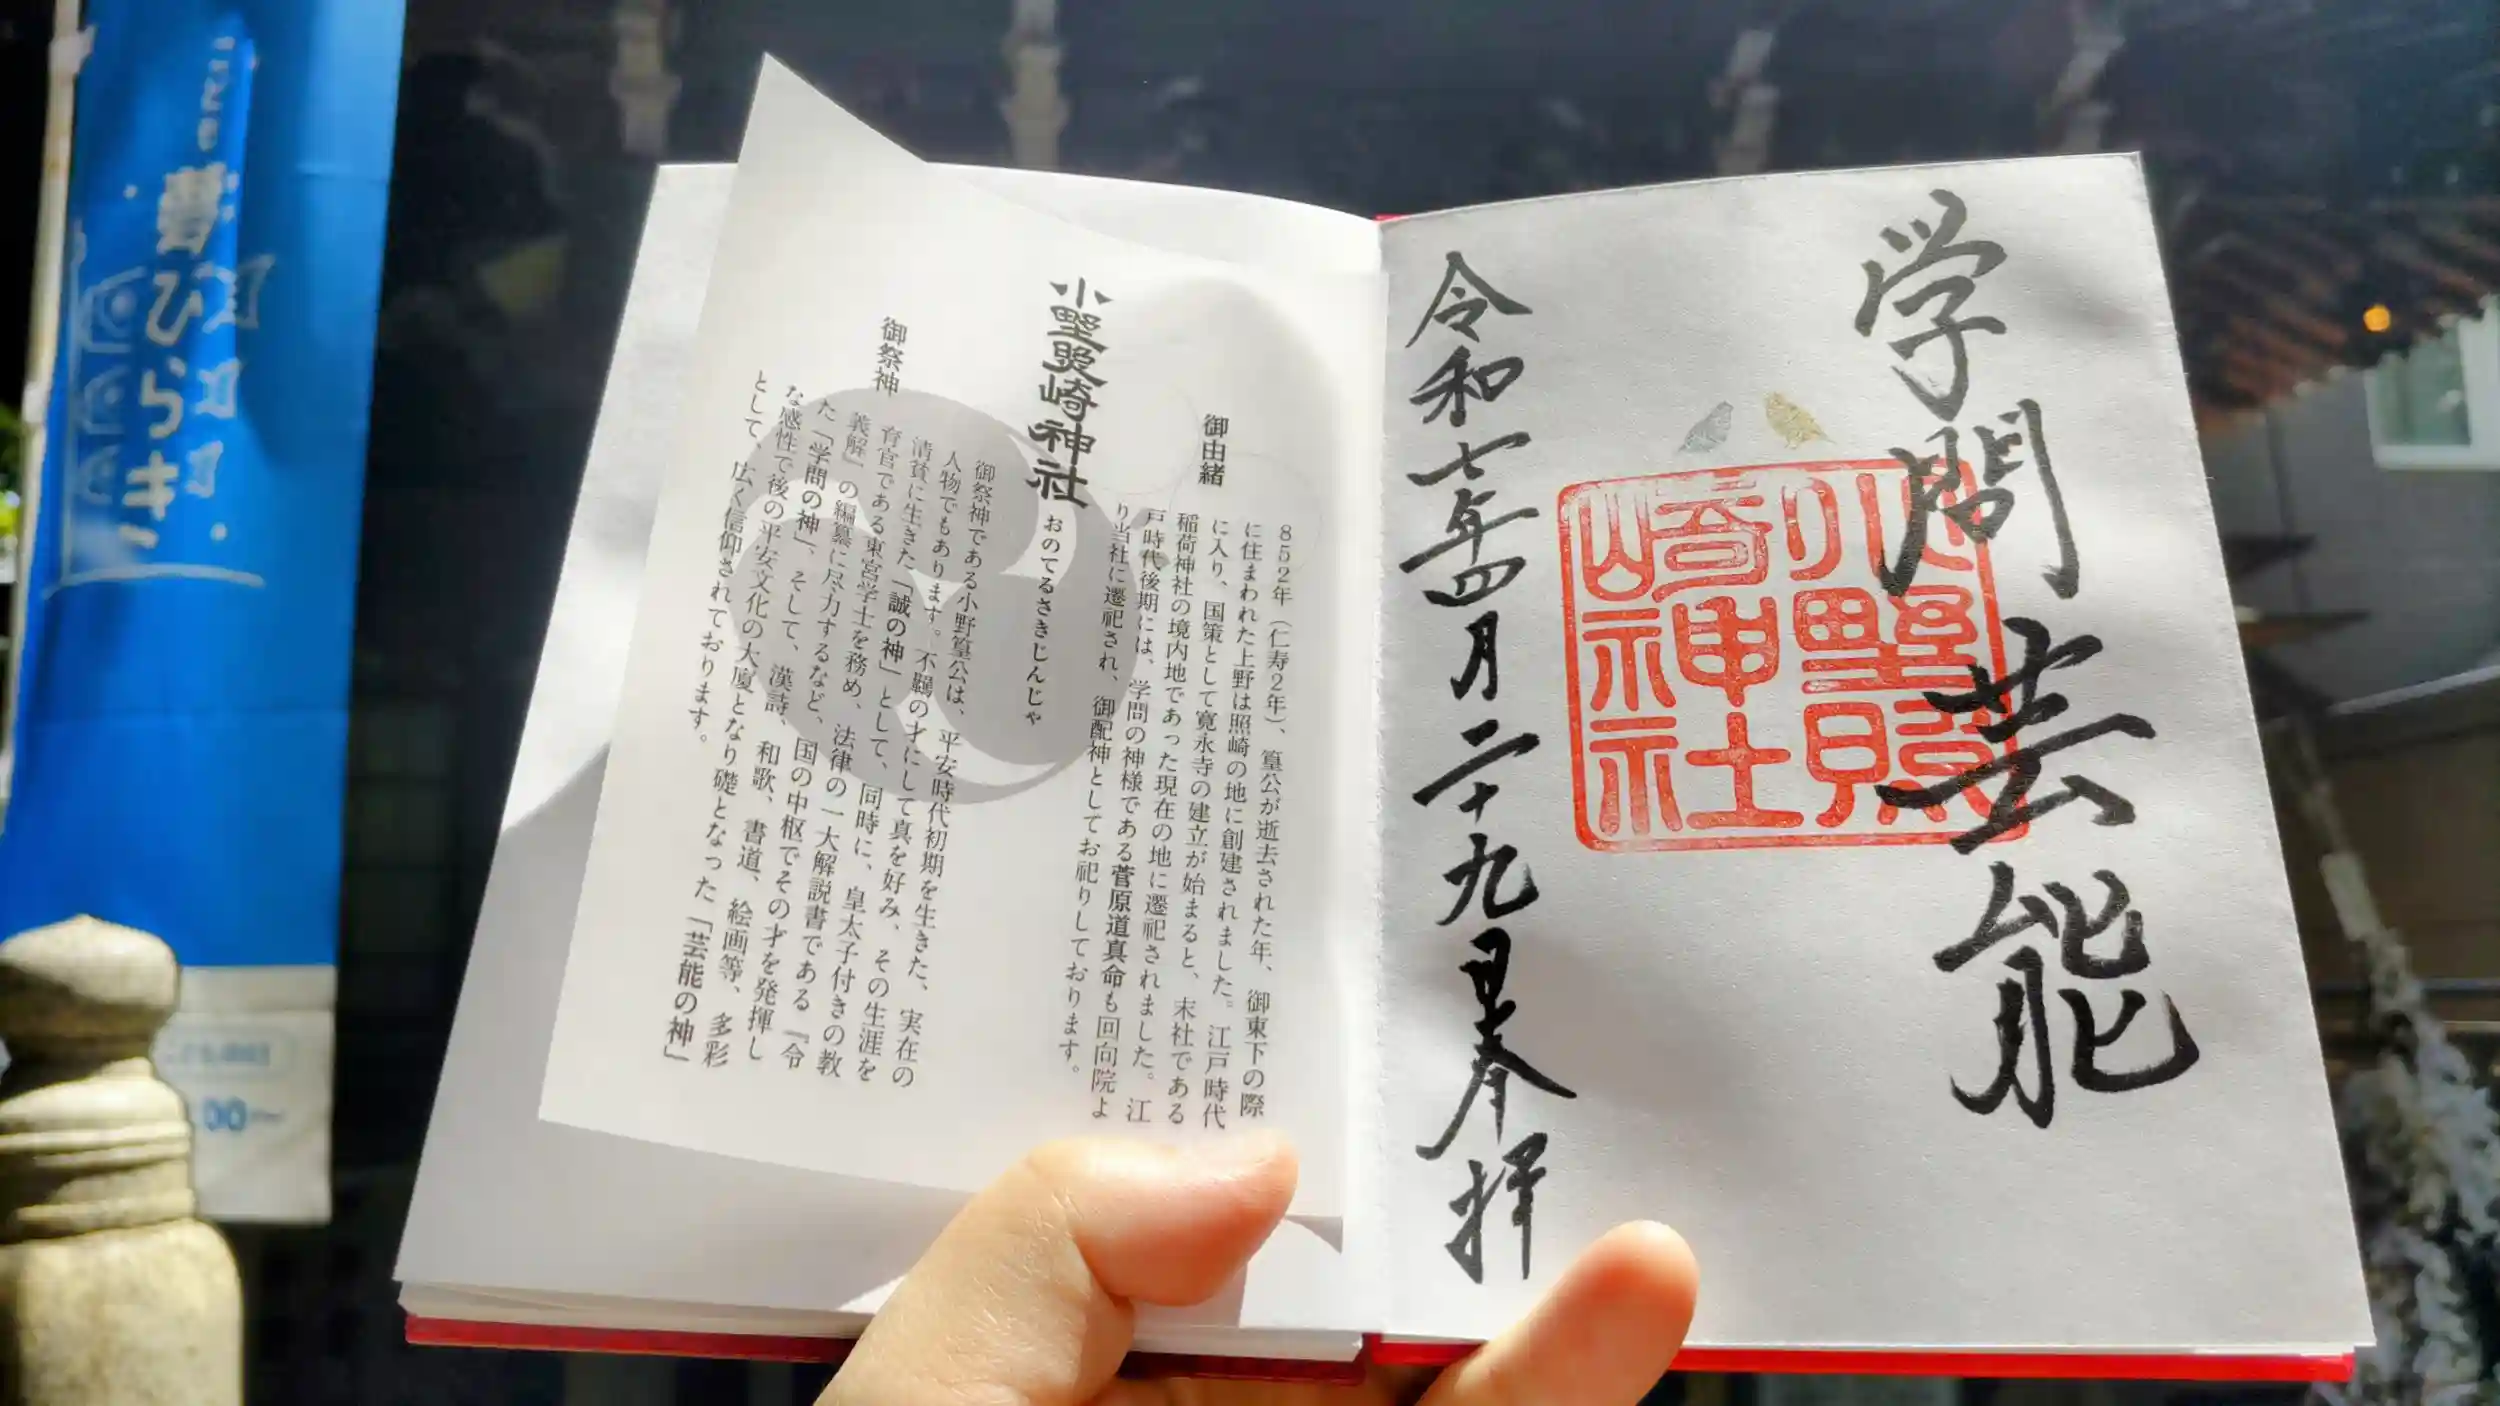 学問芸能
小野照崎神社
令和七年四月二十九日奉拝
御由緒
852年（仁寿2年）、篁公が逝去された年、御東下の際
に住まわれた上野は照崎の地に創建されました。江戸時代
に入り、国策として寛永寺の建立が始まると、末社である
稲荷神社の境内地であった現在の地に遷祀されました。江
戸時代後期には、学問の神様である菅原道真命も回向院よ
り当社に遷祀され、御配神としてお祀りしております。
小野照崎神社 おのてるさきじんじゃ
御祭神
御祭神である小野篁公は、平安時代初期を生きた、実在の
人物でもあります。不羈の才にして真を好み、その生涯を
清貧に生きた「誠の神」として、同時に、皇太子付きの教
育官である東宮学士を務め、法律の一大解説書である『令
義解』の編纂に尽力するなど、国の中枢でその才を発揮し
た「学問の神」、そして、漢詩、和歌、書道、絵画等、多彩
な感性で後の平安文化の大廈となり礎となった「芸能の神」
として、広く信仰されております。
夢ひらき
00～